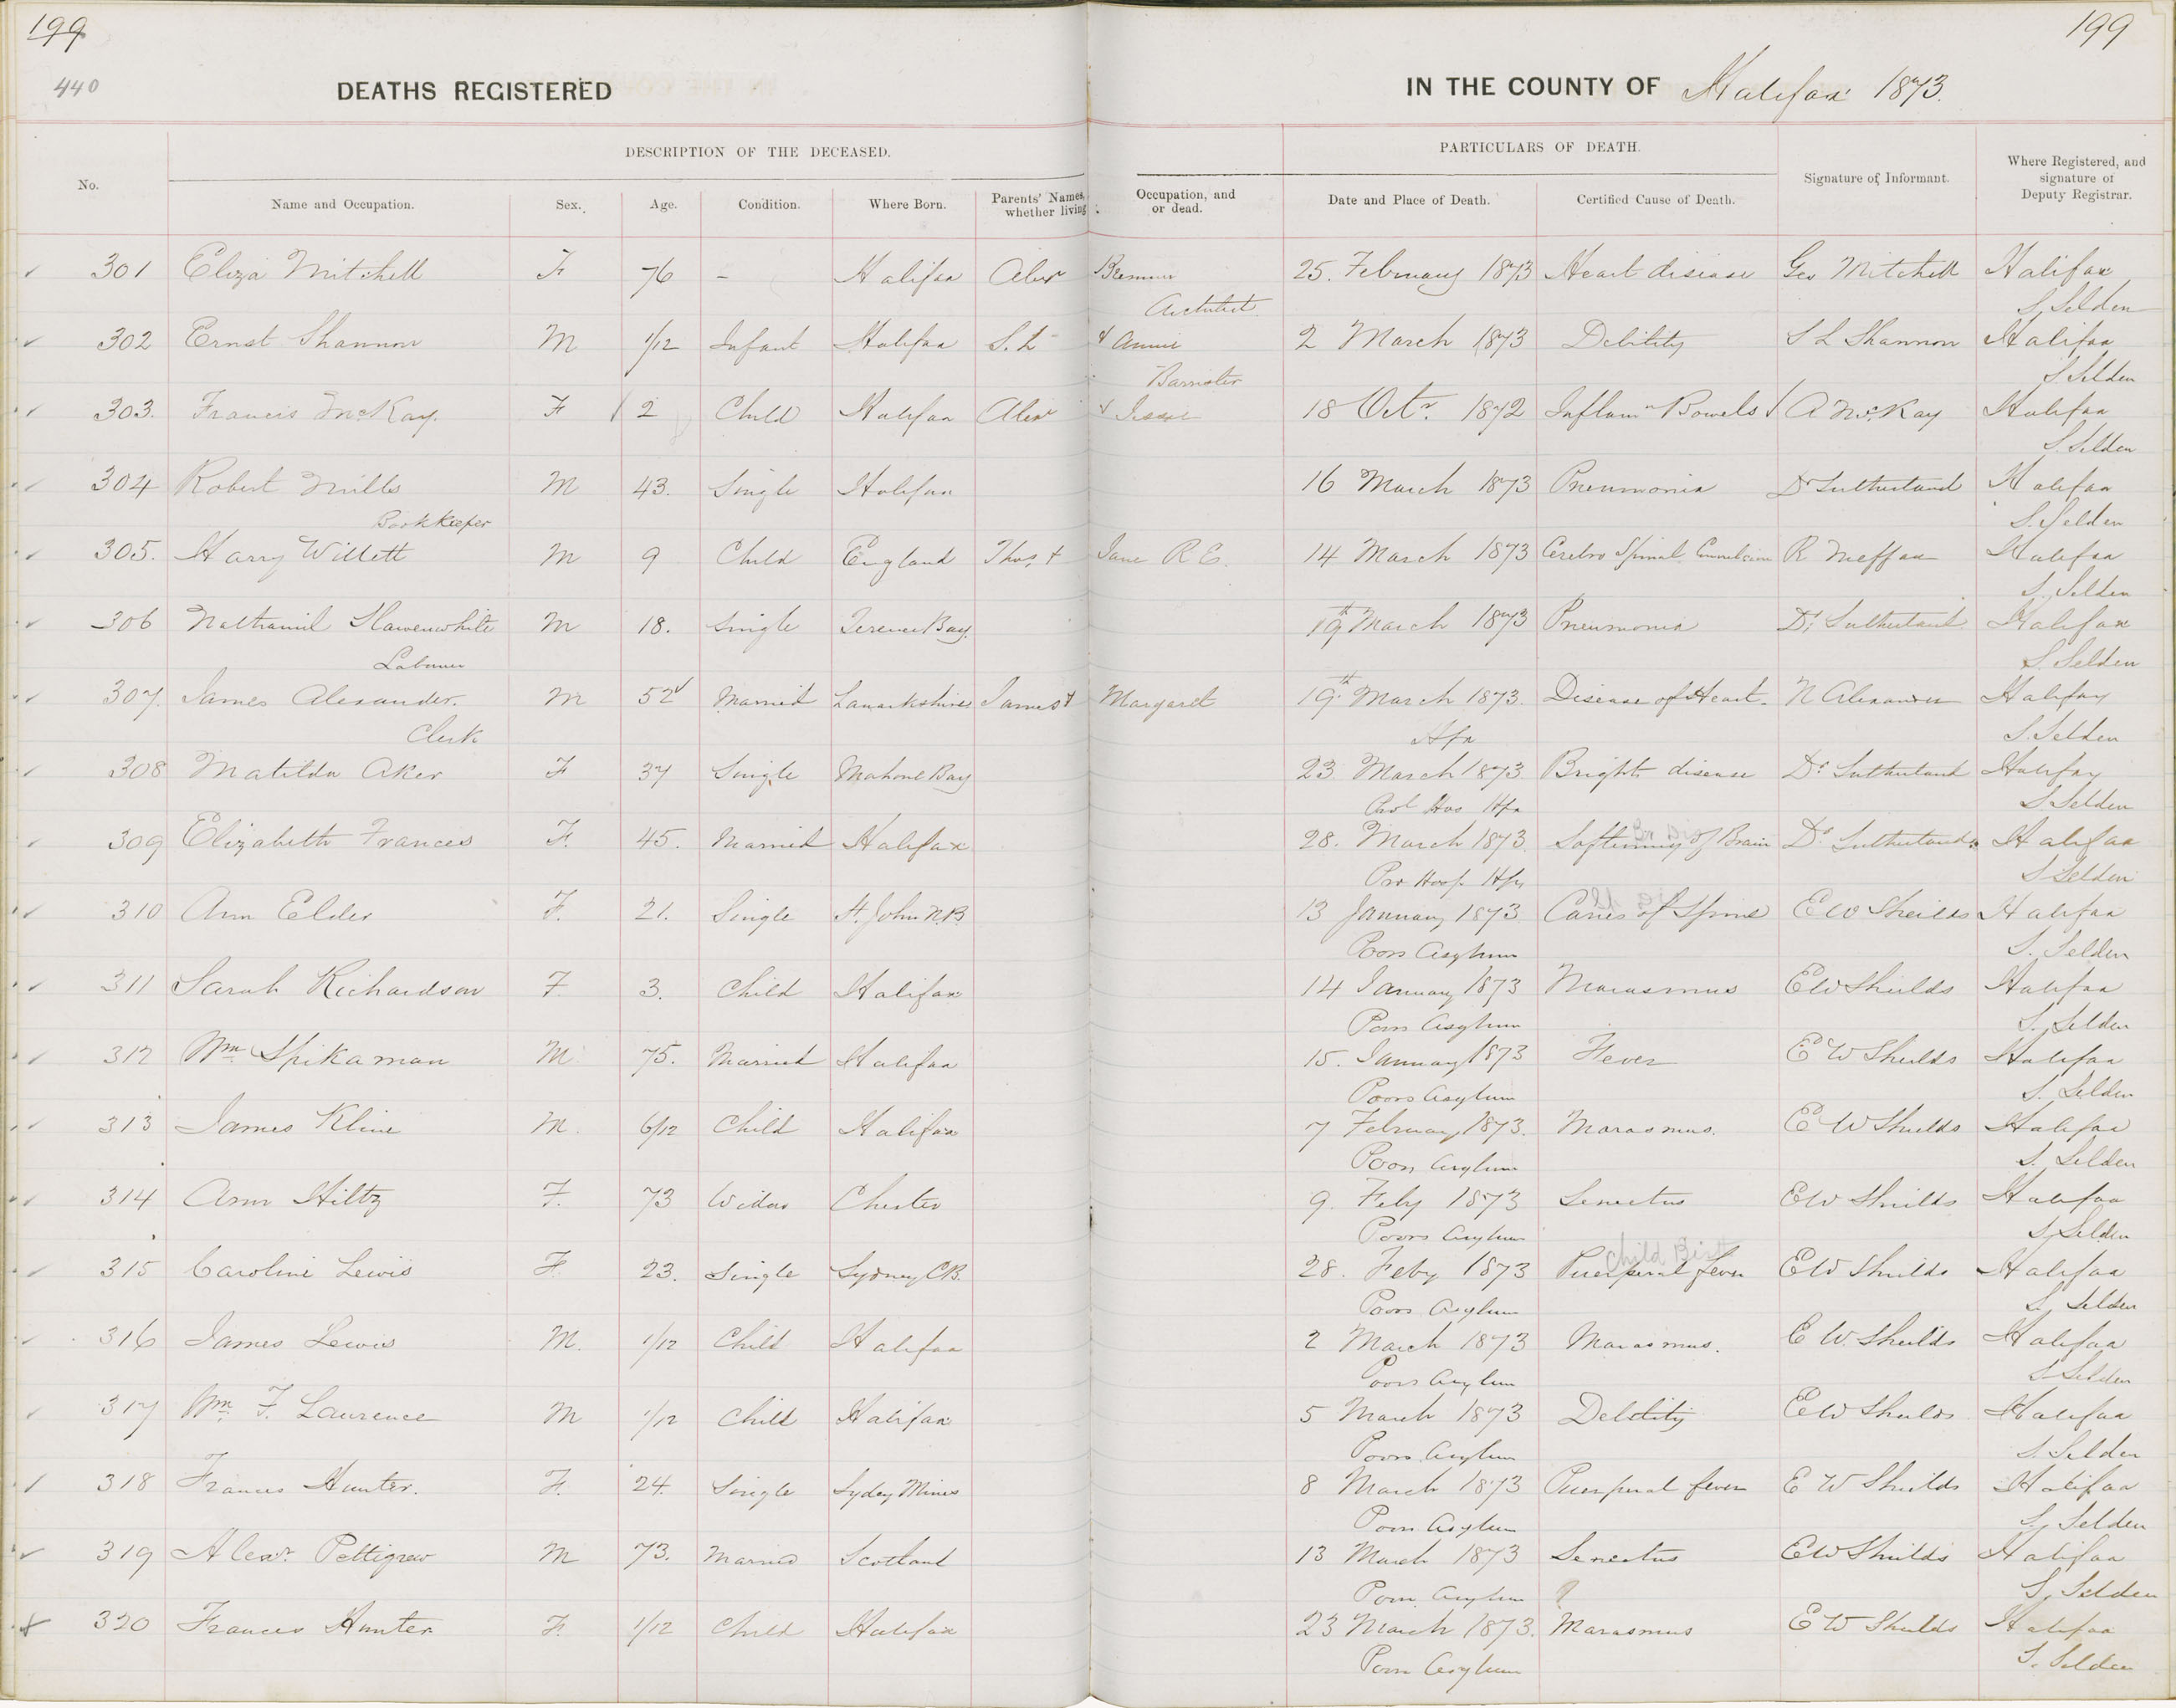 199 199
440 DEATHS REGISTERED IN THE COUNTY OF Halifax 1873.
DESCRIPTION OF THE DECEASED. PARTICULARS OF DEATH.
No. Name and Occupation. Sex. Age. Condition. Where Born. Parents' Names, whether living Occupation, and or dead. Date and Place of Death. Certified Cause of Death. Signature of Informant. Where Registered, and signature of Deputy Registrar.
301 Eliza Mitchell F 76 - Halifax Alexr 25. February 1873 Heart disease Geo Mitchell Halifax
Architect. S. Selden
302 Ernst Shannon M 1/12 Infant Halifax S. L & Annie 2 March 1873 Debility S L Shannon Halifax
Barrister S Selden
303. Francis McKay. F 2 Child Halifax Alexr & Jessie 18 Octr. 1872 Inflamn Bowels A McKay Halifax
S. Selden
304 Robert Mills M 43. Single Halifax 16 March 1873 Pneumonia Dr Sutherland Halifax
Bookkeeper S. Selden
305. Harry Willett M 9 Child England Thos & Jane R E. 14 March 1873 Cerebro Spinal Convulsions R Meffan Halifax
S. Selden
306 Nathaniel Slawenwhite M 18. Single Terence Bay. 19th March 1873 Pneumonia Dr. Sutherland Halifax
Labourer S. Selden
307. James Alexander. M 52 Married Lanarkshire James & Margaret 19th March 1873. Disease of Heart. N Alexander Halifax
Clerk Hfx S Selden
308 Matilda Aker F 37 Single Mahone Bay 23 March 1873 Brights disease Dr Sutherland Halifax
Hos Hfx S Selden
309 Elizabeth Frances F. 45. Married Halifax 28. March 1873. Softening of Brain Dr Sutherland Halifax
Pro Hosp. Hfx S Selden
310 Ann Elder F. 21. Single St. John N.B. 13 January 1873. Caries of Spine E W Sheilds Halifax
Poors Asylum S. Selden
311 Sarah Richardson F 3. Child Halifax 14 January 1873 Marasmus E W Shields Halifax
Poors Asylum S. Selden
312 Wm Spikaman M 75. Married Halifax 15. January 1873 Fever E W Shields Halifax
Poors Asylum S. Selden
313 James Kline M. 6/12 Child Halifax 7 February 1873. Marasmus. E W Shields Halifax
Poors Asylum S. Selden
314 Ann Hiltz F. 73 Widow Chester 9. Feby 1873 Senectus E W Shields Halifax
Poors Asylum S. Selden
Child Birth
315 Caroline Lewis F 23. Single Sydney CB. 28. Feby 1873 Puerperal fever E W Shields Halifax
Poors Asylum S. Selden
316 James Lewis M. 1/12 Child Halifax 2 March 1873 Marasmus. E W. Shields Halifax
Poors Asylum S Selden
317 Wm. F. Laurence M 1/12 Child Halifax 5 March 1873 Debility E W Shields Halifax
Poors Asylum S. Selden
318 Frances Hunter. F. 24. Single Sydey Mines 8 March 1873 Puerperal fever E W Shields Halifax
Poors Asylum S. Selden
319 Alexr. Pettigrew M 73. Married Scotland 13 March 1873 Senectus E W Shields Halifax
Poors Asylum ? S. Selden
320 Frances Hunter F. 1/12 Child Halifax 23 March 1873. Marasmus E W Shields Halifax
Poors Asylum S. Selden